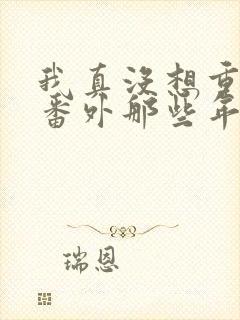 我真没想重
番外那些年
瑞恩